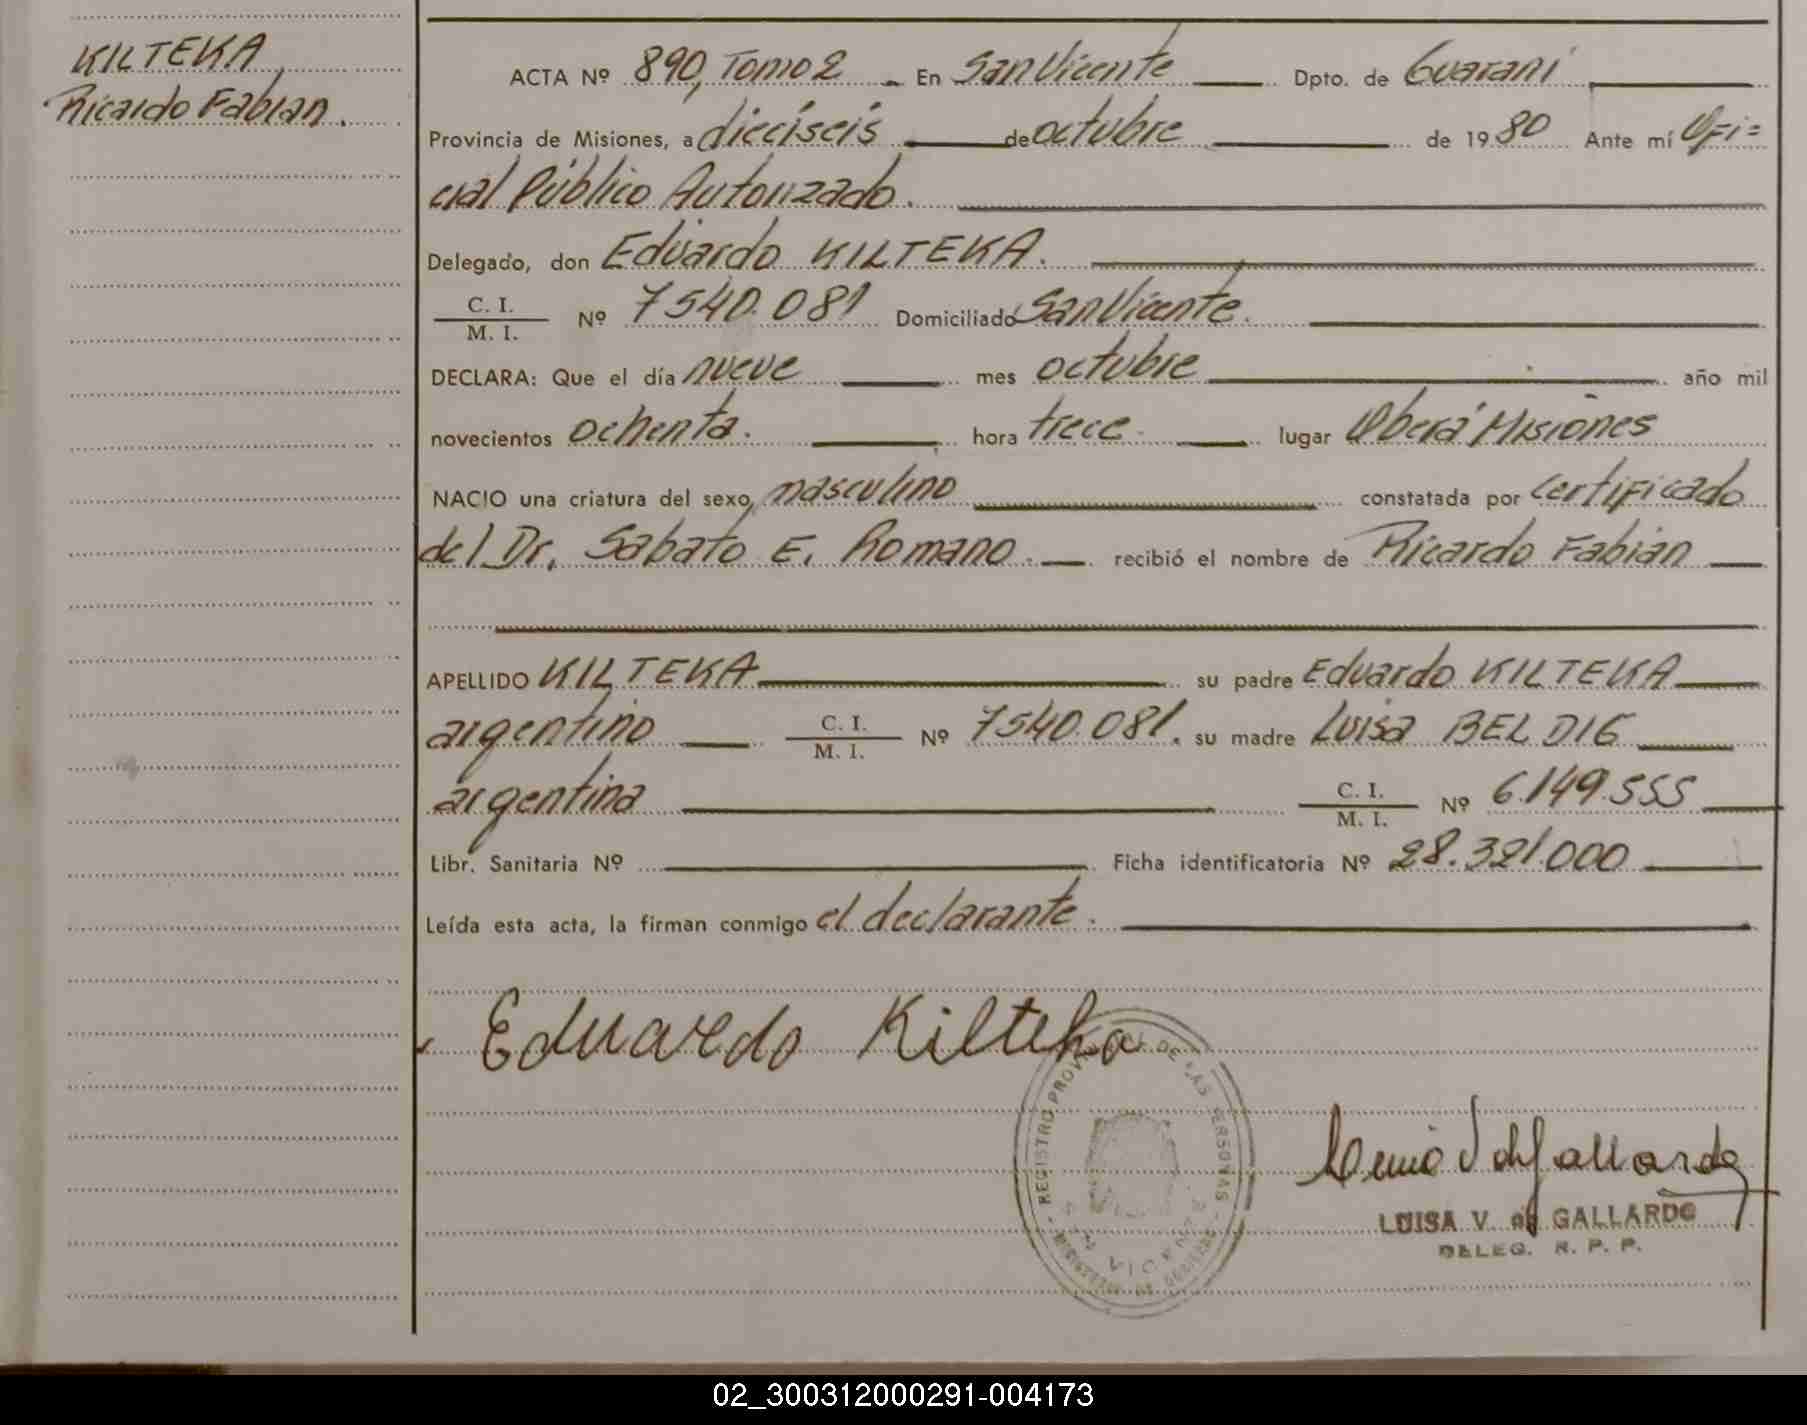 KILTEKA
Ricardo Fabian.
ACTA Nº 890, Tomo 2 En San Vicente Dpto. de Guaraní
Provincia de Misiones, a dieciseis de octubre de 1980 Ante mí Ofi=
cial Público Autorizado.
Delegado, don Eduardo KILTEKA.
C. I.
M. I. Nº 7540.081 Domiciliado San Vicente.
DECLARA: Que el día nueve mes octubre año mil
novecientos ochenta. hora trece lugar Oberá Misiones
NACIO una criatura del sexo masculino constatada por certificado
del Dr. Sabato E. Romano. recibió el nombre de Ricardo Fabian
APELLIDO KILTEKA su padre Eduardo KILTEKA
argentino C. I.
M. I. Nº 7540.081. su madre Luisa BELDIG
argentina C. I.
M. I. Nº 6.149.555
Libr. Sanitaria Nº Ficha identificatoria Nº 28.321.000
Leída esta acta, la firman conmigo el declarante.
Eduardo Kilteka
REGISTRO PROVINCIAL DE LAS PERSONAS
SAN VICENTE
MINISTERIO DE GOBIERNO
de Gallardo
LUISA V. de GALLARDO
DELEG. R. P. P.
02_300312000291-004173